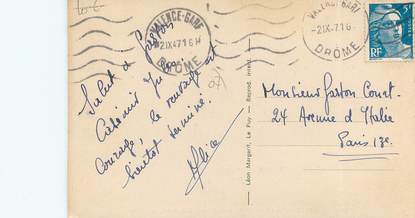 10€
VALENCE-GARE
2 IX 47 16 H
DRÔME
VALENCE-GARE
-2 IX .47 16
DRÔME
RF
Salut à Gaston
Courage, le
bientôt terminé.
Alice
Léon Margerit, Le Puy — Reprod. interd.
Monsieur Gaston Court-
24 Avenue d'Italie
Paris 13e.